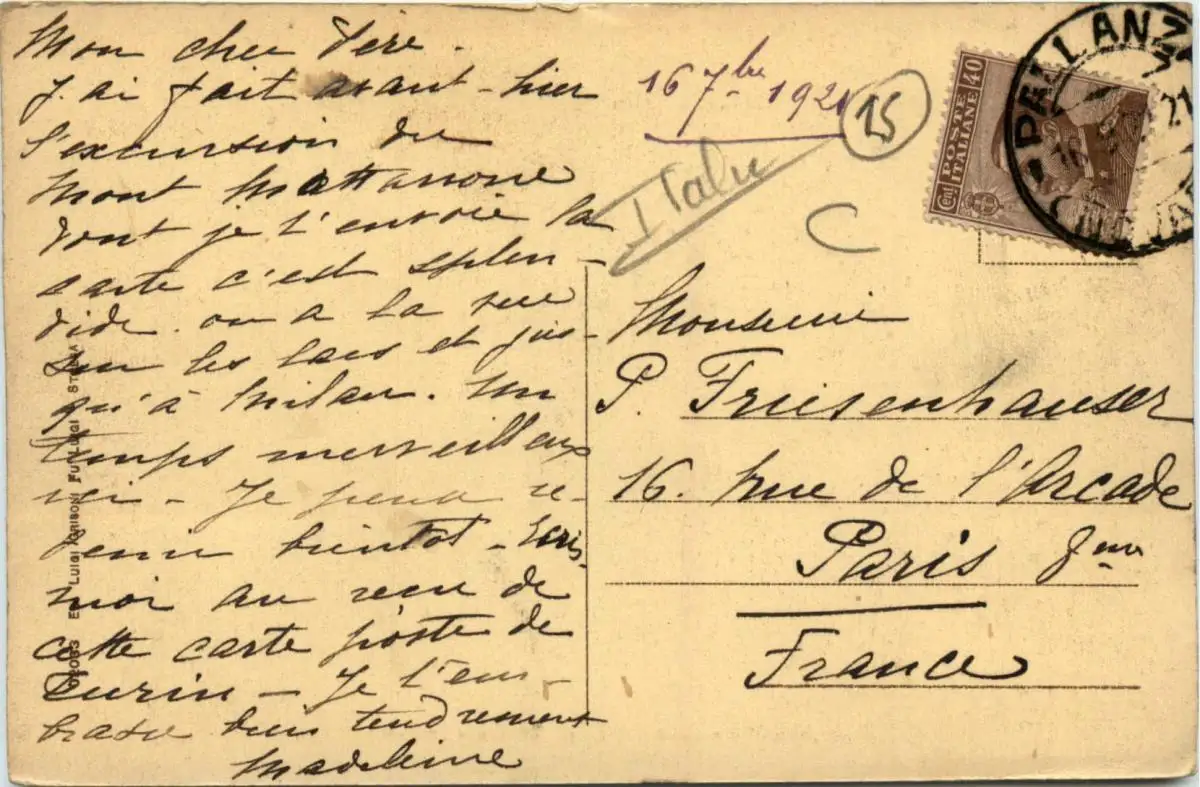 Mon cher Père.
J'ai fait avant-hier
l'excursion du
Mont Mottarone
dont je t'envoie la
carte c'est splen-
dide. on a la vue
sur les lacs et jus-
qu'à Milan. Un
temps merveilleux
ici - Je pense re-
venir bientôt - Ecris-
moi au reçu de
cette carte poste de
Turin - Je t'em-
brasse bien tendrement
Madeleine
16 7bre 1921
15
Italie
C
POSTE
ITALIANE
Cent 40
PALLANZA
16 21
Monsieur
P. Friesenhauser
16. Rue de l'Arcade
Paris 8me
France
Ed. Luigi